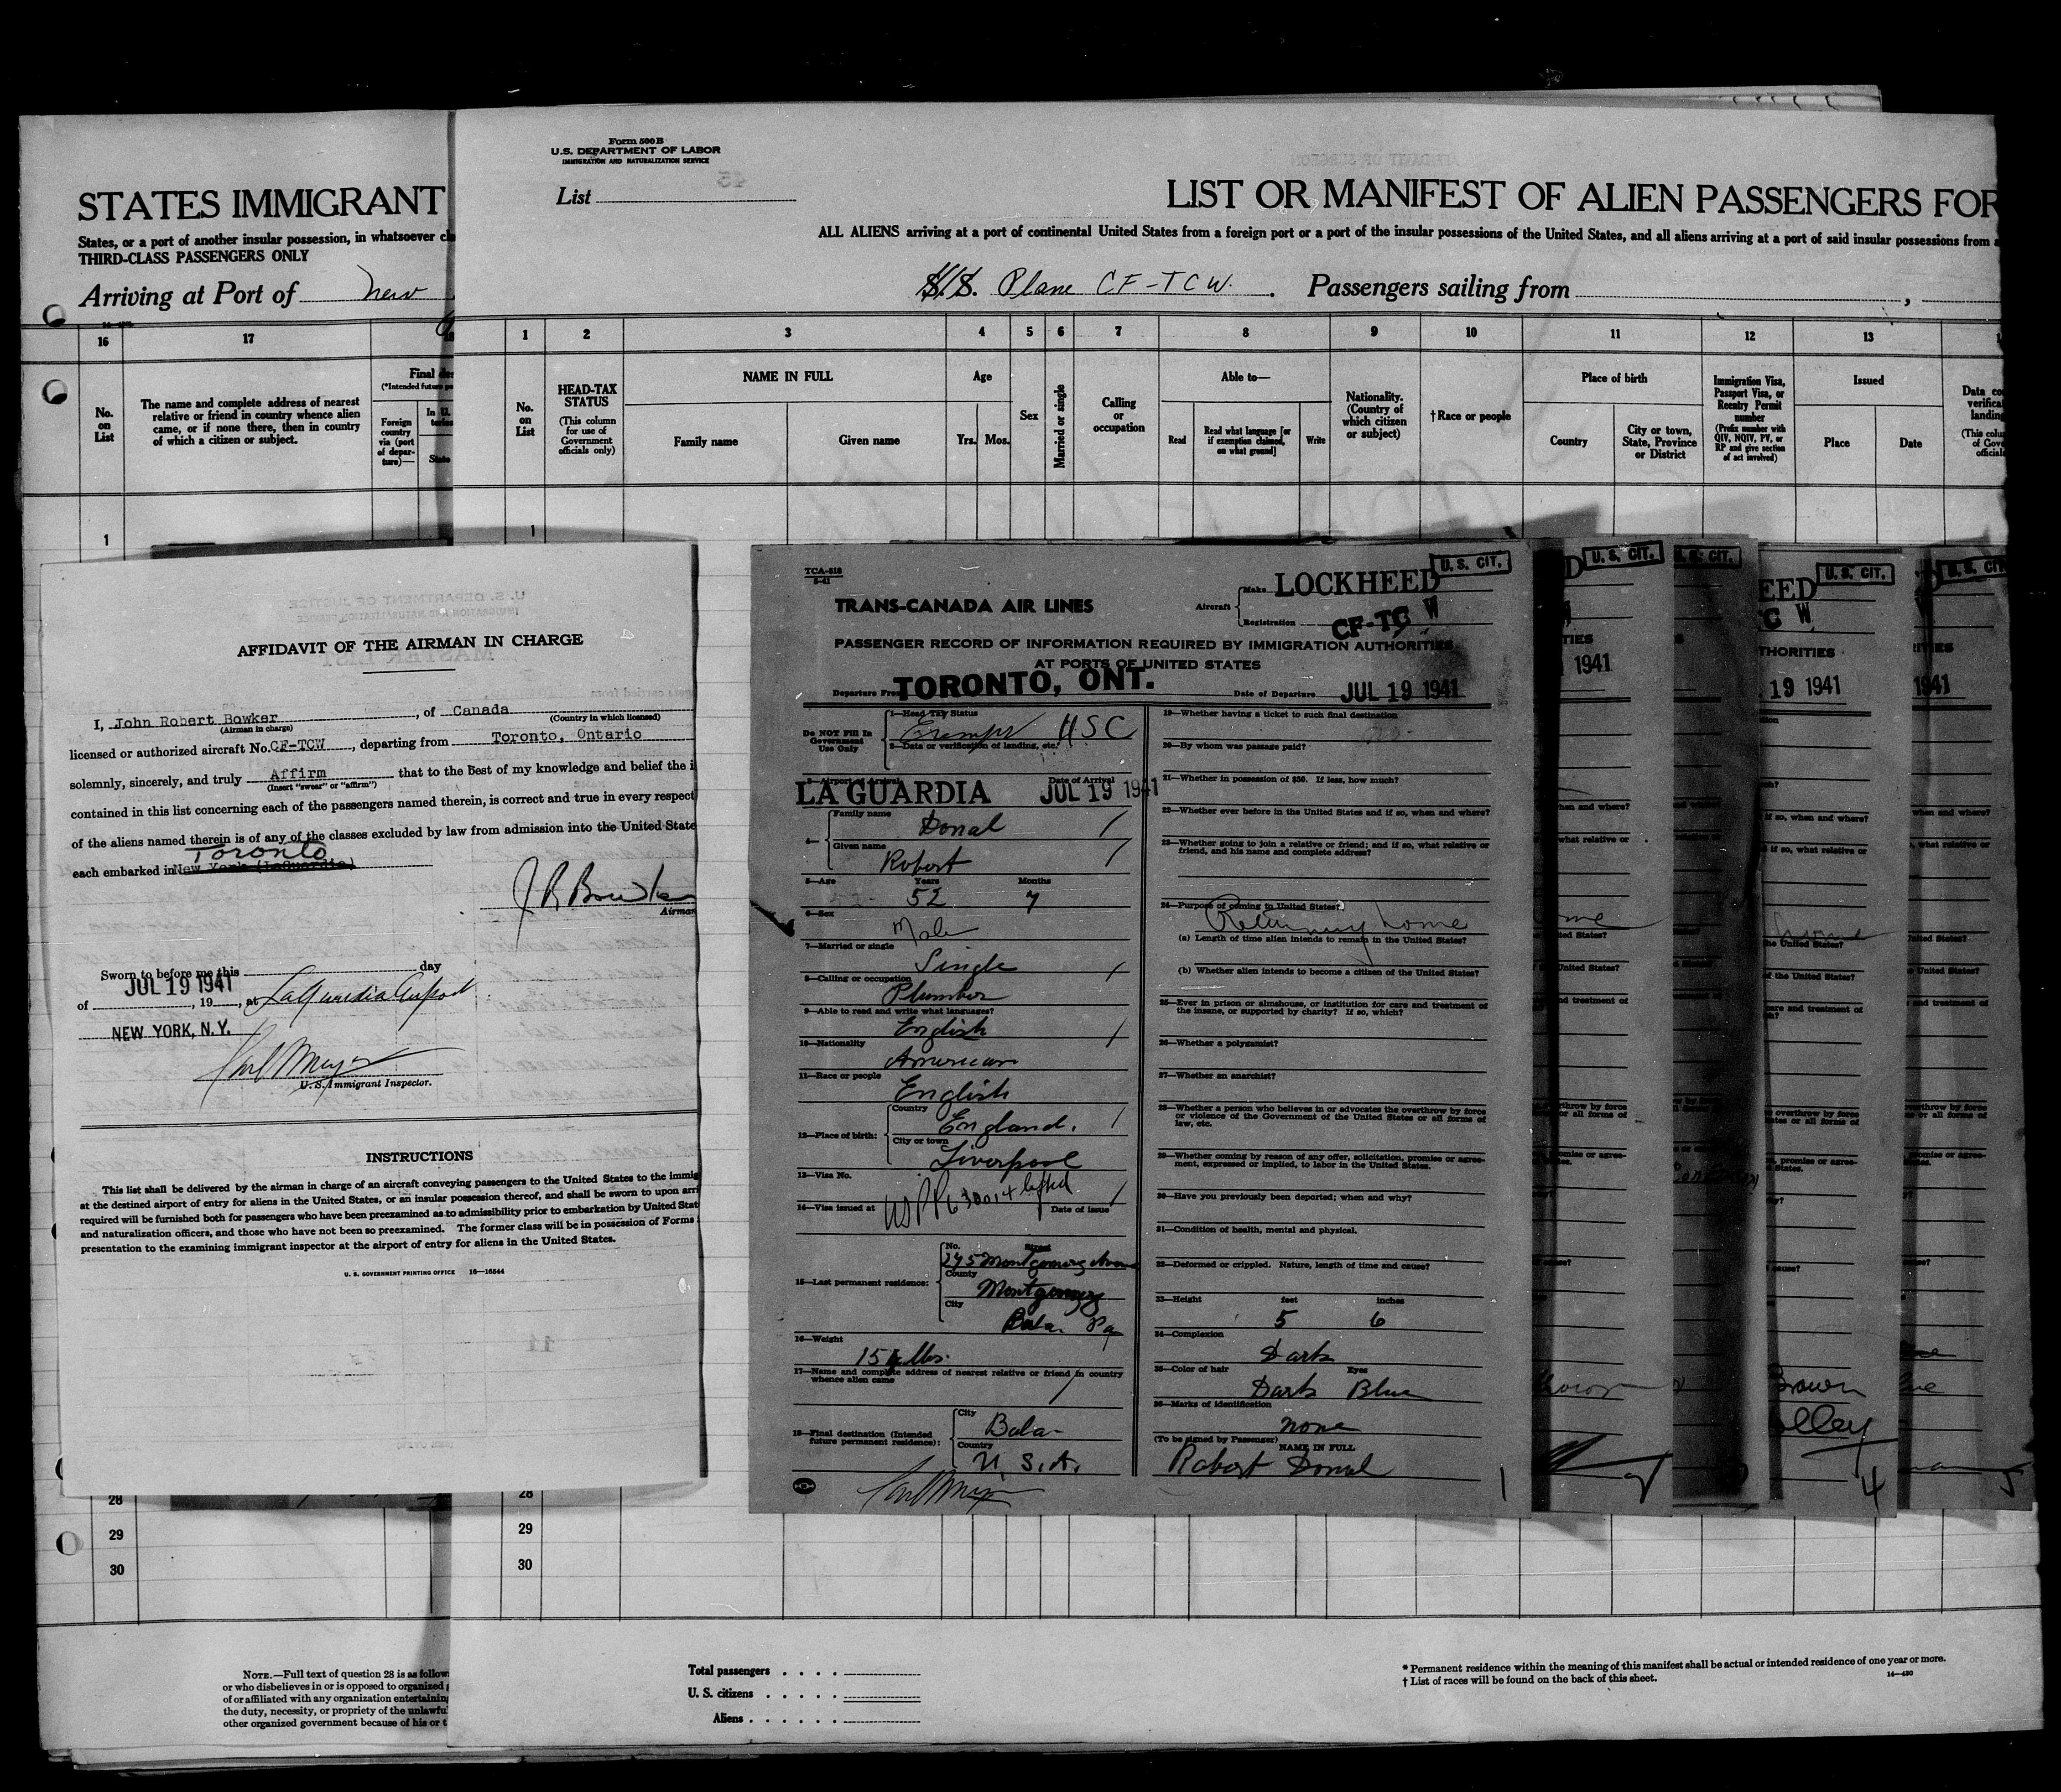 STATES IMMIGRANT
States, or a port of another insular possession, in whatsoever
THIRD-CLASS PASSENGERS ONLY
Arriving at Port of New
16 17
No. on List
The name and complete address of nearest
relative or friend in country whence alien
came, or if none there, then in country
of which a citizen or subject.
Final
(*Intended future
Foreign
country
via (port
of depar-
ture)—
In U.
State
1
Form 500 B
U.S. DEPARTMENT OF LABOR
IMMIGRATION AND NATURALIZATION SERVICE
List
LIST OR MANIFEST OF ALIEN PASSENGERS FOR
ALL ALIENS arriving at a port of continental United States from a foreign port or a port of the insular possessions of the United States, and all aliens arriving at a port of said insular possessions from
S.S. Plane CF-TCW. Passengers sailing from
1 2 3 4 5 6 7 8 9 10 11 12 13
No. on List
HEAD-TAX
STATUS
(This column
for use of
Government
officials only)
NAME IN FULL
Family name Given name
Age
Yrs. Mos.
Sex
Married or single
Calling
or
occupation
Able to—
Read
Read what language [or
if exemption claimed,
on what ground]
Write
Nationality.
(Country of
which citizen
or subject)
†Race or people
Place of birth
Country
City or town,
State, Province
or District
Immigration Visa,
Passport Visa, or
Reentry Permit
number
(Prefix number with
QIV, NQIV, PV, or
RP and give section
of act involved)
Issued
Place Date
1
AFFIDAVIT OF THE AIRMAN IN CHARGE
I, John Robert Bowker, of Canada
(Airman in charge) (Country in which licensed)
licensed or authorized aircraft No. CF-TCW, departing from Toronto, Ontario
solemnly, sincerely, and truly Affirm that to the best of my knowledge and belief the
(Insert "swear" or "affirm")
contained in this list concerning each of the passengers named therein, is correct and true in every respect
of the aliens named therein is of any of the classes excluded by law from admission into the United State
Toronto
each embarked in New York (LaGuardia)
J R Bowker
Airman
Sworn to before me this day
JUL 19 1941
of , 19 , at LaGuardia Airport
NEW YORK, N.Y.
Karl Meyer
U.S. Immigrant Inspector.
INSTRUCTIONS
This list shall be delivered by the airman in charge of an aircraft conveying passengers to the United States to the immig
at the destined airport of entry for aliens in the United States, or an insular possession thereof, and shall be sworn to upon arri
required will be furnished both for passengers who have been preexamined as to admissibility prior to embarkation by United Stat
and naturalization officers, and those who have not been so preexamined. The former class will be in possession of Forms
presentation to the examining immigrant inspector at the airport of entry for aliens in the United States.
U. S. GOVERNMENT PRINTING OFFICE 16—16544
TCA-518
5-41
TRANS-CANADA AIR LINES
Aircraft
Make LOCKHEED
U. S. CIT.
Registration CF-TC W
PASSENGER RECORD OF INFORMATION REQUIRED BY IMMIGRATION AUTHORITIES
AT PORTS OF UNITED STATES
Departure From TORONTO, ONT. Date of Departure JUL 19 1941
Do NOT Fill In
Government
Use Only
1—Head Tax Status
Exempt USC
2—Data or verification of landing, etc.
3—Airport of Arrival Date of Arrival
LA GUARDIA JUL 19 1941
4—
Family name
Donal
Given name
Robert
5—Age Years Months
52 7
6—Sex
Male
7—Married or single
Single
8—Calling or occupation
Plumber
9—Able to read and write what languages?
English
10—Nationality
American
11—Race or people
English
12—Place of birth:
Country
England.
City or town
Liverpool
13—Visa No.
14—Visa issued at Date of issue
15—Last permanent residence:
No. Street
245 Montgomery Avenue
County
Montgomery
City
Bala Pa
16—Weight
154 lbs.
17—Name and complete address of nearest relative or friend in country
whence alien came
18—Final destination (Intended
future permanent residence):
City
Bala
Country
U. S. A.
Karl Meyer
19—Whether having a ticket to such final destination
20—By whom was passage paid?
21—Whether in possession of $50. If less, how much?
22—Whether ever before in the United States and if so, when and where?
23—Whether going to join a relative or friend; and if so, what relative or
friend, and his name and complete address?
24—Purpose of coming to United States?
Returning home
(a) Length of time alien intends to remain in the United States?
(b) Whether alien intends to become a citizen of the United States?
25—Ever in prison or almshouse, or institution for care and treatment of
the insane, or supported by charity? If so, which?
26—Whether a polygamist?
27—Whether an anarchist?
28—Whether a person who believes in or advocates the overthrow by force
or violence of the Government of the United States or all forms of
law, etc.
29—Whether coming by reason of any offer, solicitation, promise or agree-
ment, expressed or implied, to labor in the United States.
30—Have you previously been deported; when and why?
31—Condition of health, mental and physical.
32—Deformed or crippled. Nature, length of time and cause?
33—Height feet inches
5 6
34—Complexion
Dark
35—Color of hair Eyes
Dark Blue
36—Marks of identification
none
(To be signed by Passenger) NAME IN FULL
Robert Donal
1
U. S. CIT.
1941
U. S. CIT.
EED
TC W
THORITIES
19 1941
Brown
4
U. S. CIT.
1941
5
28
29
30
28
29
30
NOTE.—Full text of question 28 is as follow
or who disbelieves in or is opposed to organized
of or affiliated with any organization entertaining
the duty, necessity, or propriety of the unlawfu
other organized government because of his or
Total passengers
U. S. citizens
Aliens
* Permanent residence within the meaning of this manifest shall be actual or intended residence of one year or more.
† List of races will be found on the back of this sheet.
14—430